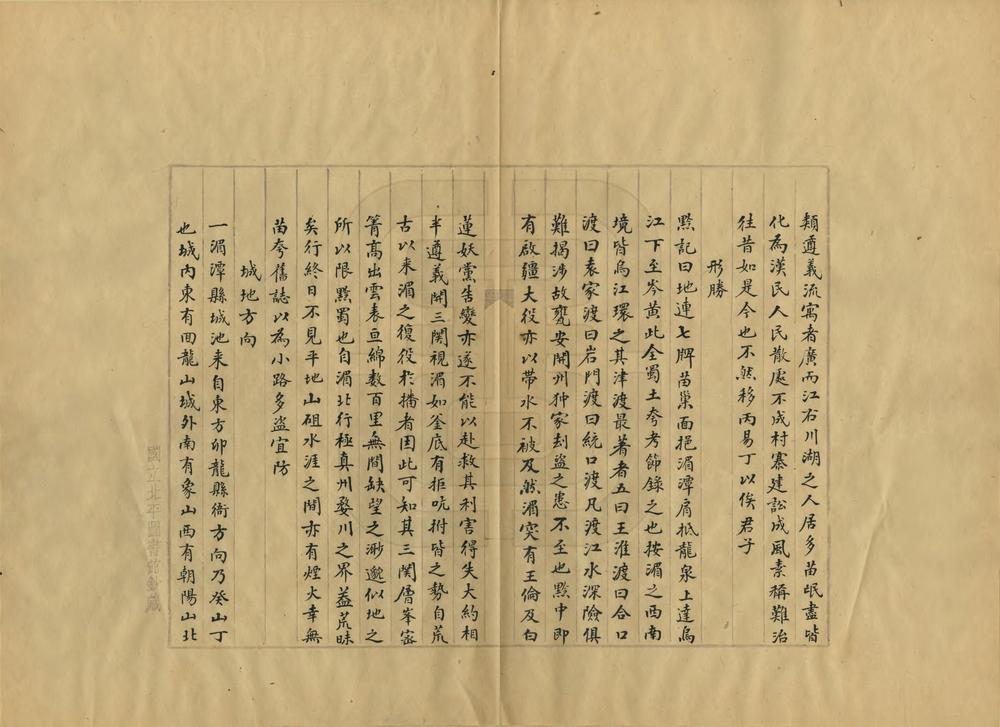 類遵義流寓者廣而江右川湖之人居多苗岷盡皆
化為漢民人民散處不成村寨建訟成風素稱難治
往昔如是今也不然移丙易丁以俟君子
形勝
黔記曰地連七牌苗巢面挹湄潭肩抵龍泉上達烏
江下至岑黄此全蜀土夸考節錄之也按湄之西南
境皆烏江環之其津渡最著者五曰王淮渡曰合口
渡曰袁家渡曰岩門渡曰統口渡凡渡江水深險俱
難揭涉故甕安開州狆家刦盜之患不至也黔中即
有啟疆大役亦以帶水不被及然湄突有王倫及白
蓮妖黨告變亦遂不能以赴救其利害得失大約相
半遵義開三関視湄如釜底有拒吭拊皆之勢自荒
古以来湄之復役於播者因此可知其三関層峯宻
箐高出雲表亘綿數百里無間缺望之渺邈似地之
所以限黔蜀也自湄北行極真州婺川之界益荒昧
矣行終日不見平地山砠水涯之間亦有煙火幸無
苗夸舊誌以為小路多盜宜防
城地方向
一湄潭縣城池来自東方夘龍縣衙方向乃癸山丁
也城内東有囬龍山城外南有象山西有朝陽山北
國立北平圖書館鈔藏